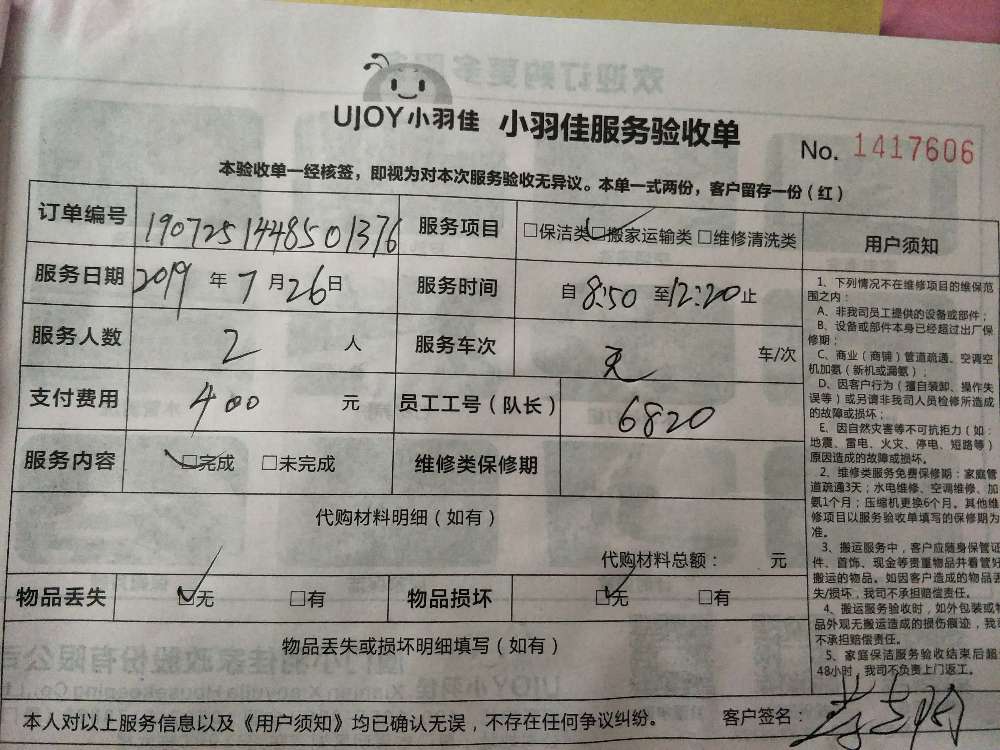 UJOY小羽佳 小羽佳服务验收单
No. 1417606
本验收单一经核签，即视为对本次服务验收无异议。本单一式两份，客户留存一份（红）
订单编号 1907251448501376 服务项目 □保洁类 □搬家运输类 □维修清洗类
服务日期 2019 年 7 月 26 日 服务时间 自 8:50 至 12:20 止
服务人数 2 人 服务车次 无 车/次
支付费用 400 元 员工工号（队长） 6820
服务内容 □完成 □未完成 维修类保修期
代购材料明细（如有）
代购材料总额： 元
物品丢失 □无 □有 物品损坏 □无 □有
物品丢失或损坏明细填写（如有）
本人对以上服务信息以及《用户须知》均已确认无误，不存在任何争议纠纷。 客户签名：
用户须知
1、下列情况不在维修项目的维保范
围之内：
A、非我司员工提供的设备或部件；
B、设备或部件本身已经超过出厂保
修期；
C、商业（商铺）管道疏通、空调空
机加氨（新机或漏氨）；
D、因客户行为（擅自装卸、操作失
误等）或另请非我司人员检修所造成
的故障或损坏；
E、因自然灾害等不可抗拒力（如：
地震、雷电、火灾、停电、短路等）
原因造成的故障或损坏。
2、维修类服务免费保修期：家庭管
道疏通3天；水电维修、空调维修、加
氨1个月；压缩机更换6个月。其他维
修项目以服务验收单填写的保修期为
准。
3、搬运服务中，客户应随身保管证
件、首饰、现金等贵重物品并看管好
搬运的物品。如因客户造成的物品丢
失/损坏，我司不承担赔偿责任。
4、搬运服务验收时，如外包装或物
品外观无搬运造成的损伤痕迹，我司
不承担赔偿责任。
5、家庭保洁服务验收结束后超
48小时，我司不负责上门返工。